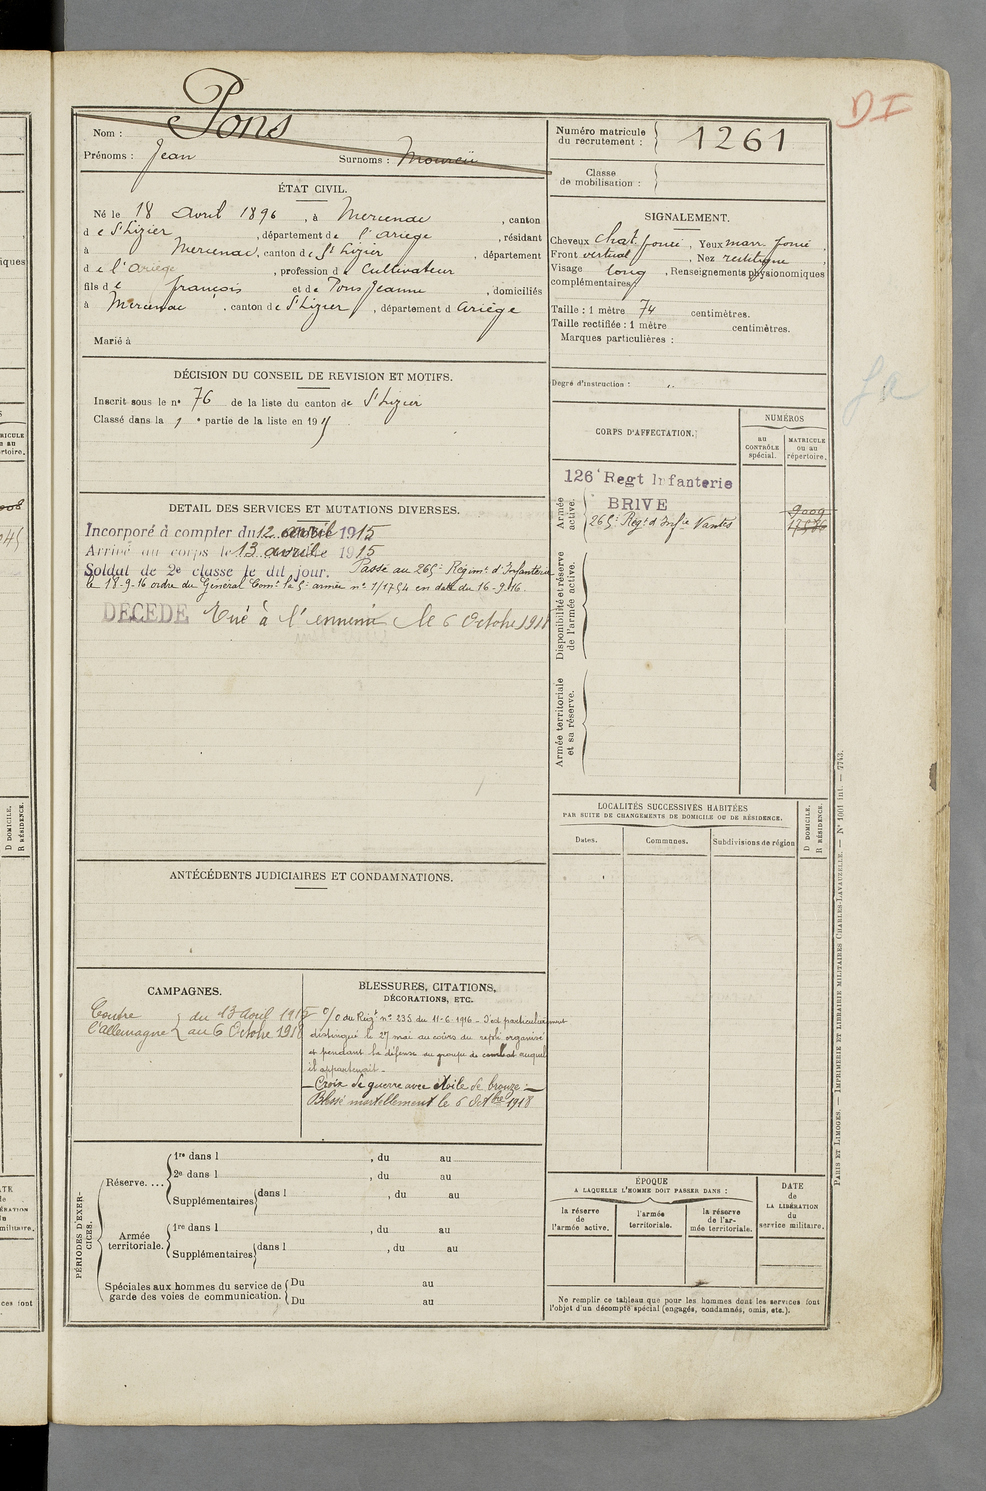 DI
Pons
Nom :
Prénoms : Jean Surnoms :
Numéro matricule du recrutement : 1261
Classe de mobilisation :
ÉTAT CIVIL.
Né le 18 avril 1896, à Mercenac, canton
de St Lizier, département de l'Ariège, résidant
à Mercenac, canton de St Lizier, département
de l'Ariège, profession de Cultivateur
fils de françois et de Pons Jeanne, domiciliés
à Mercenac, canton de St Lizier, département d Ariège
Marié à
SIGNALEMENT.
Cheveux chat. foncé, Yeux marr. foncé,
Front vertical, Nez rectiligne,
Visage long, Renseignements physionomiques
complémentaires
Taille : 1 mètre 74 centimètres.
Taille rectifiée : 1 mètre centimètres.
Marques particulières :
Degré d'instruction :
DÉCISION DU CONSEIL DE REVISION ET MOTIFS.
Inscrit sous le no 76 de la liste du canton de St Lizier
Classé dans la 1e partie de la liste en 1915
CORPS D'AFFECTATION.
NUMÉROS
au CONTRÔLE spécial.
MATRICULE ou au répertoire.
Armée active.
126e Regt Infanterie
BRIVE
265e Régt d'Infie Nantes
9009
Disponibilité et réserve de l'armée active.
Armée territoriale et sa réserve.
DETAIL DES SERVICES ET MUTATIONS DIVERSES.
Incorporé à compter du 12 avril 1915
Arrivé au corps le 13 avril 1915
Soldat de 2e classe le dit jour. Passé au 265e Régimt d'Infanterie
le 18-9-16 ordre du Général Comt la 5e armée no 1/1754 en date du 16-9-16.
DECEDE Tué à l'ennemi le 6 Octobre 1918
LOCALITÉS SUCCESSIVES HABITÉES
PAR SUITE DE CHANGEMENTS DE DOMICILE OU DE RÉSIDENCE.
Dates.
Communes.
Subdivisions de région
D DOMICILE.
R RÉSIDENCE.
ANTÉCÉDENTS JUDICIAIRES ET CONDAMNATIONS.
CAMPAGNES.
Contre l'Allemagne
du 13 avril 1915
au 6 Octobre 1918
BLESSURES, CITATIONS,
DÉCORATIONS, ETC.
O/O du Régt no 235 du 11-6-1916 - S'est particulièrement
distingué le 27 mai au cours du repli organisé
et pendant la défense du groupe de combat auquel
il appartenait -
- Croix de guerre avec étoile de bronze :-
Blessé mortellement le 6 Octbre 1918
PÉRIODES D'EXERCICES.
Réserve....
1re dans l , du au
2e dans l , du au
Supplémentaires dans l , du au
Armée territoriale.
1re dans l , du au
Supplémentaires dans l , du au
Spéciales aux hommes du service de
garde des voies de communication.
Du au
Du au
ÉPOQUE
A LAQUELLE L'HOMME DOIT PASSER DANS :
la réserve de l'armée active.
l'armée territoriale.
la réserve de l'armée territoriale.
DATE de LA LIBÉRATION du service militaire.
Ne remplir ce tableau que pour les hommes dont les services font
l'objet d'un décompte spécial (engagés, condamnés, omis, etc.).
PARIS ET LIMOGES. — IMPRIMERIE ET LIBRAIRIE MILITAIRES CHARLES-LAVAUZELLE. — No 1001 int. — 7743.